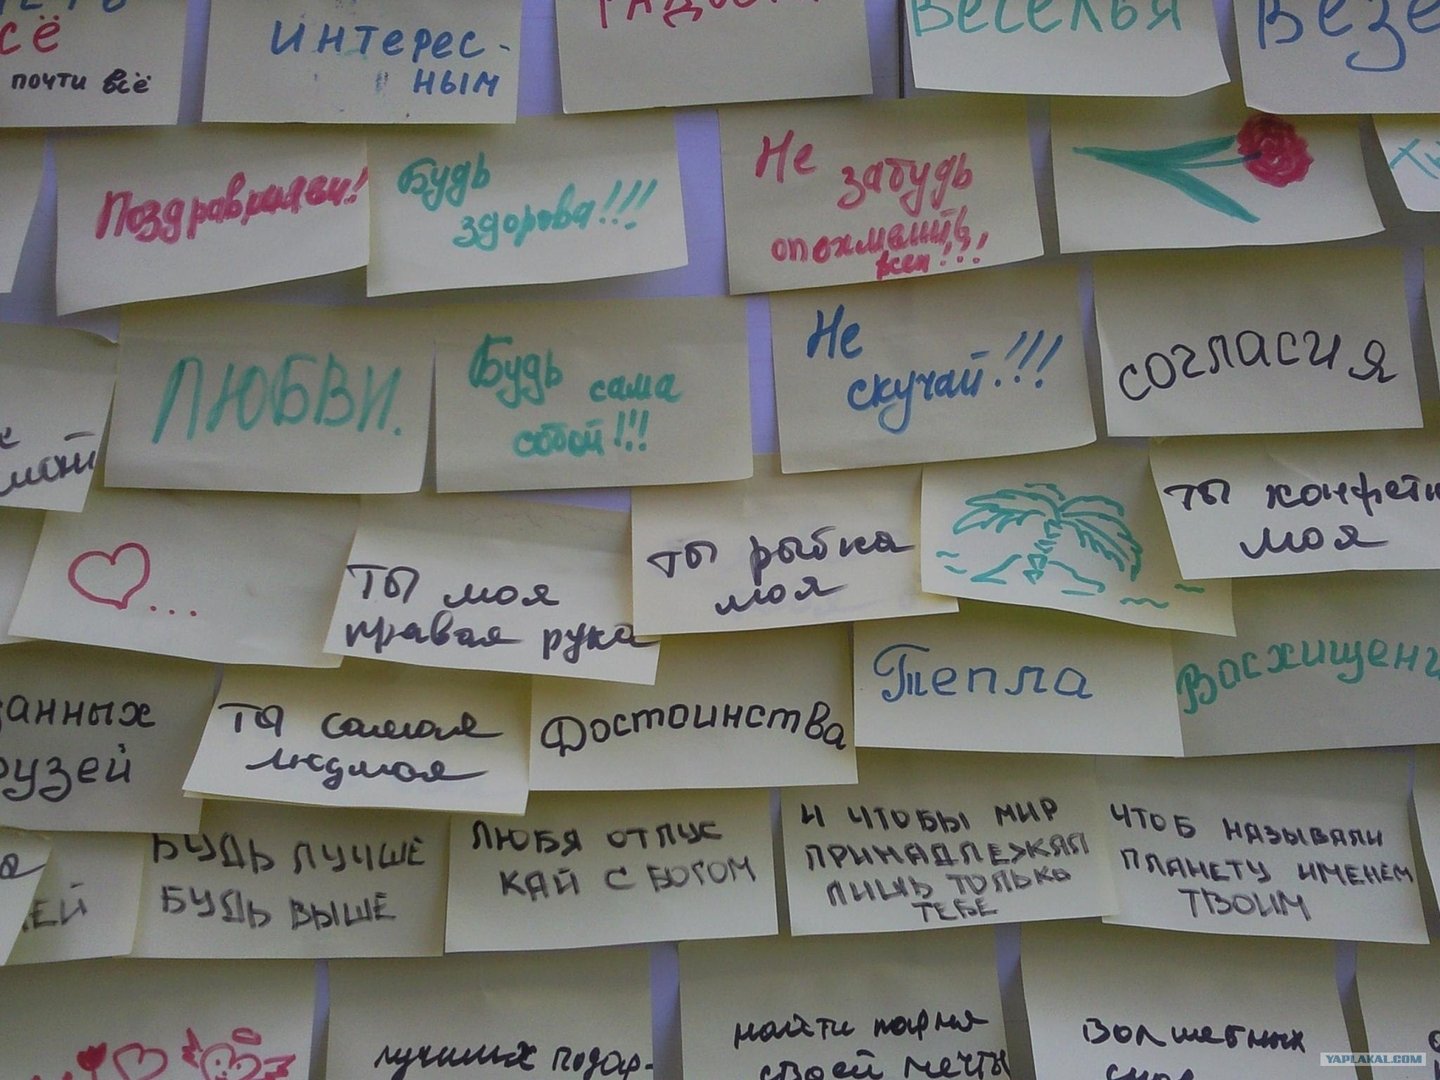 сё
почти всё
интерес-
ным
радости
веселья
везе
Поздравляем!
Будь
здорова!!!
Не
забудь
опохмелить
всех!!!
ЛЮБВИ.
Будь сама
собой!!!
Не
скучай!!!
согласия
...
ты моя
правая рука
ты рыбка
моя
ты конфетк
моя
анных
рузей
ты самая
людмая
Достоинства
Тепла
Восхищен
БУДЬ ЛУЧШЕ
БУДЬ ВЫШЕ
ЛЮБЯ ОТПУС
КАЙ С БОГОМ
И ЧТОБЫ МИР
ПРИНАДЛЕЖАЛ
ЛИШЬ ТОЛЬКО
ТЕБЕ
ЧТОБ НАЗЫВАЛИ
ПЛАНЕТУ ИМЕНЕМ
ТВОИМ
ЕЙ
лучших подар-
найти парня
своей мечты
волшебных
снов
YAPLAKAL.COM